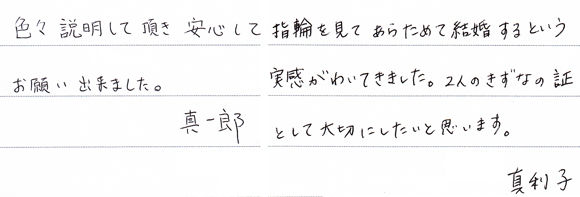 色々説明して頂き安心して
お願い出来ました。
真一郎
指輪を見てあらためて結婚するという
実感がわいてきました。2人のきずなの証
として大切にしたいと思います。
真利子